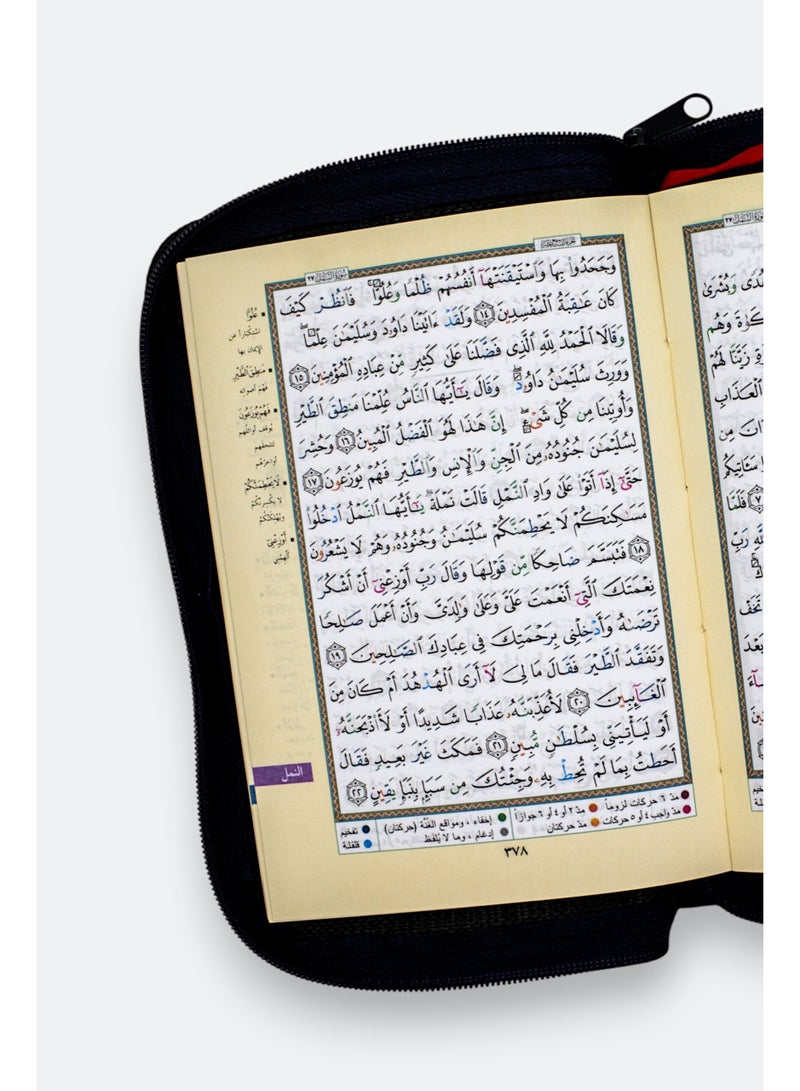 سُورَةُ النَّمْلِ ٢٧
وَجَحَدُوا۟ بِهَا وَٱسْتَيْقَنَتْهَآ أَنفُسُهُمْ ظُلْمًا وَعُلُوًّا ۚ فَٱنظُرْ كَيْفَ
كَانَ عَـٰقِبَةُ ٱلْمُفْسِدِينَ ١٤ وَلَقَدْ ءَاتَيْنَا دَاوُۥدَ وَسُلَيْمَـٰنَ عِلْمًا ۖ
وَقَالَا ٱلْحَمْدُ لِلَّهِ ٱلَّذِى فَضَّلَنَا عَلَىٰ كَثِيرٍ مِّنْ عِبَادِهِ ٱلْمُؤْمِنِينَ ١٥
وَوَرِثَ سُلَيْمَـٰنُ دَاوُۥدَ ۖ وَقَالَ يَـٰٓأَيُّهَا ٱلنَّاسُ عُلِّمْنَا مَنطِقَ ٱلطَّيْرِ
وَأُوتِينَا مِن كُلِّ شَىْءٍ ۖ إِنَّ هَـٰذَا لَهُوَ ٱلْفَضْلُ ٱلْمُبِينُ ١٦ وَحُشِرَ
لِسُلَيْمَـٰنَ جُنُودُهُۥ مِنَ ٱلْجِنِّ وَٱلْإِنسِ وَٱلطَّيْرِ فَهُمْ يُوزَعُونَ ١٧
حَتَّىٰٓ إِذَآ أَتَوْا۟ عَلَىٰ وَادِ ٱلنَّمْلِ قَالَتْ نَمْلَةٌ يَـٰٓأَيُّهَا ٱلنَّمْلُ ٱدْخُلُوا۟
مَسَـٰكِنَكُمْ لَا يَحْطِمَنَّكُمْ سُلَيْمَـٰنُ وَجُنُودُهُۥ وَهُمْ لَا يَشْعُرُونَ
١٨ فَتَبَسَّمَ ضَاحِكًا مِّن قَوْلِهَا وَقَالَ رَبِّ أَوْزِعْنِىٓ أَنْ أَشْكُرَ
نِعْمَتَكَ ٱلَّتِىٓ أَنْعَمْتَ عَلَىَّ وَعَلَىٰ وَٰلِدَىَّ وَأَنْ أَعْمَلَ صَـٰلِحًا
تَرْضَىٰهُ وَأَدْخِلْنِى بِرَحْمَتِكَ فِى عِبَادِكَ ٱلصَّـٰلِحِينَ ١٩
وَتَفَقَّدَ ٱلطَّيْرَ فَقَالَ مَا لِىَ لَآ أَرَى ٱلْهُدْهُدَ أَمْ كَانَ مِنَ
ٱلْغَآئِبِينَ ٢٠ لَأُعَذِّبَنَّهُۥ عَذَابًا شَدِيدًا أَوْ لَأَا۟ذْبَحَنَّهُۥٓ
أَوْ لَيَأْتِيَنِّى بِسُلْطَـٰنٍ مُّبِينٍ ٢١ فَمَكَثَ غَيْرَ بَعِيدٍ فَقَالَ
أَحَطتُ بِمَا لَمْ تُحِطْ بِهِۦ وَجِئْتُكَ مِن سَبَإٍۭ بِنَبَإٍ يَقِينٍ ٢٢
عُلُوًّا
استكبارا عن
الإيمان بها
مَنطِقَ الطَّيْرِ
فهم أصواته
فَهُمْ يُوزَعُونَ
يوقف أوائلهم
لتلحقهم
أواخرهم
لَا يَحْطِمَنَّكُمْ
لا يكسرنكم
ويهلكنكم
أَوْزِعْنِي
ألهمني
النمل
مد ٦ حركات لزوماً مد ٢ أو ٤ أو ٦ جوازاً
مد واجب ٤ أو ٥ حركات مد حركتان
إخفاء، ومواقع الغنّة (حركتان) تفخيم
إدغام، وما لا يُلفظ قلقلة
٣٧٨